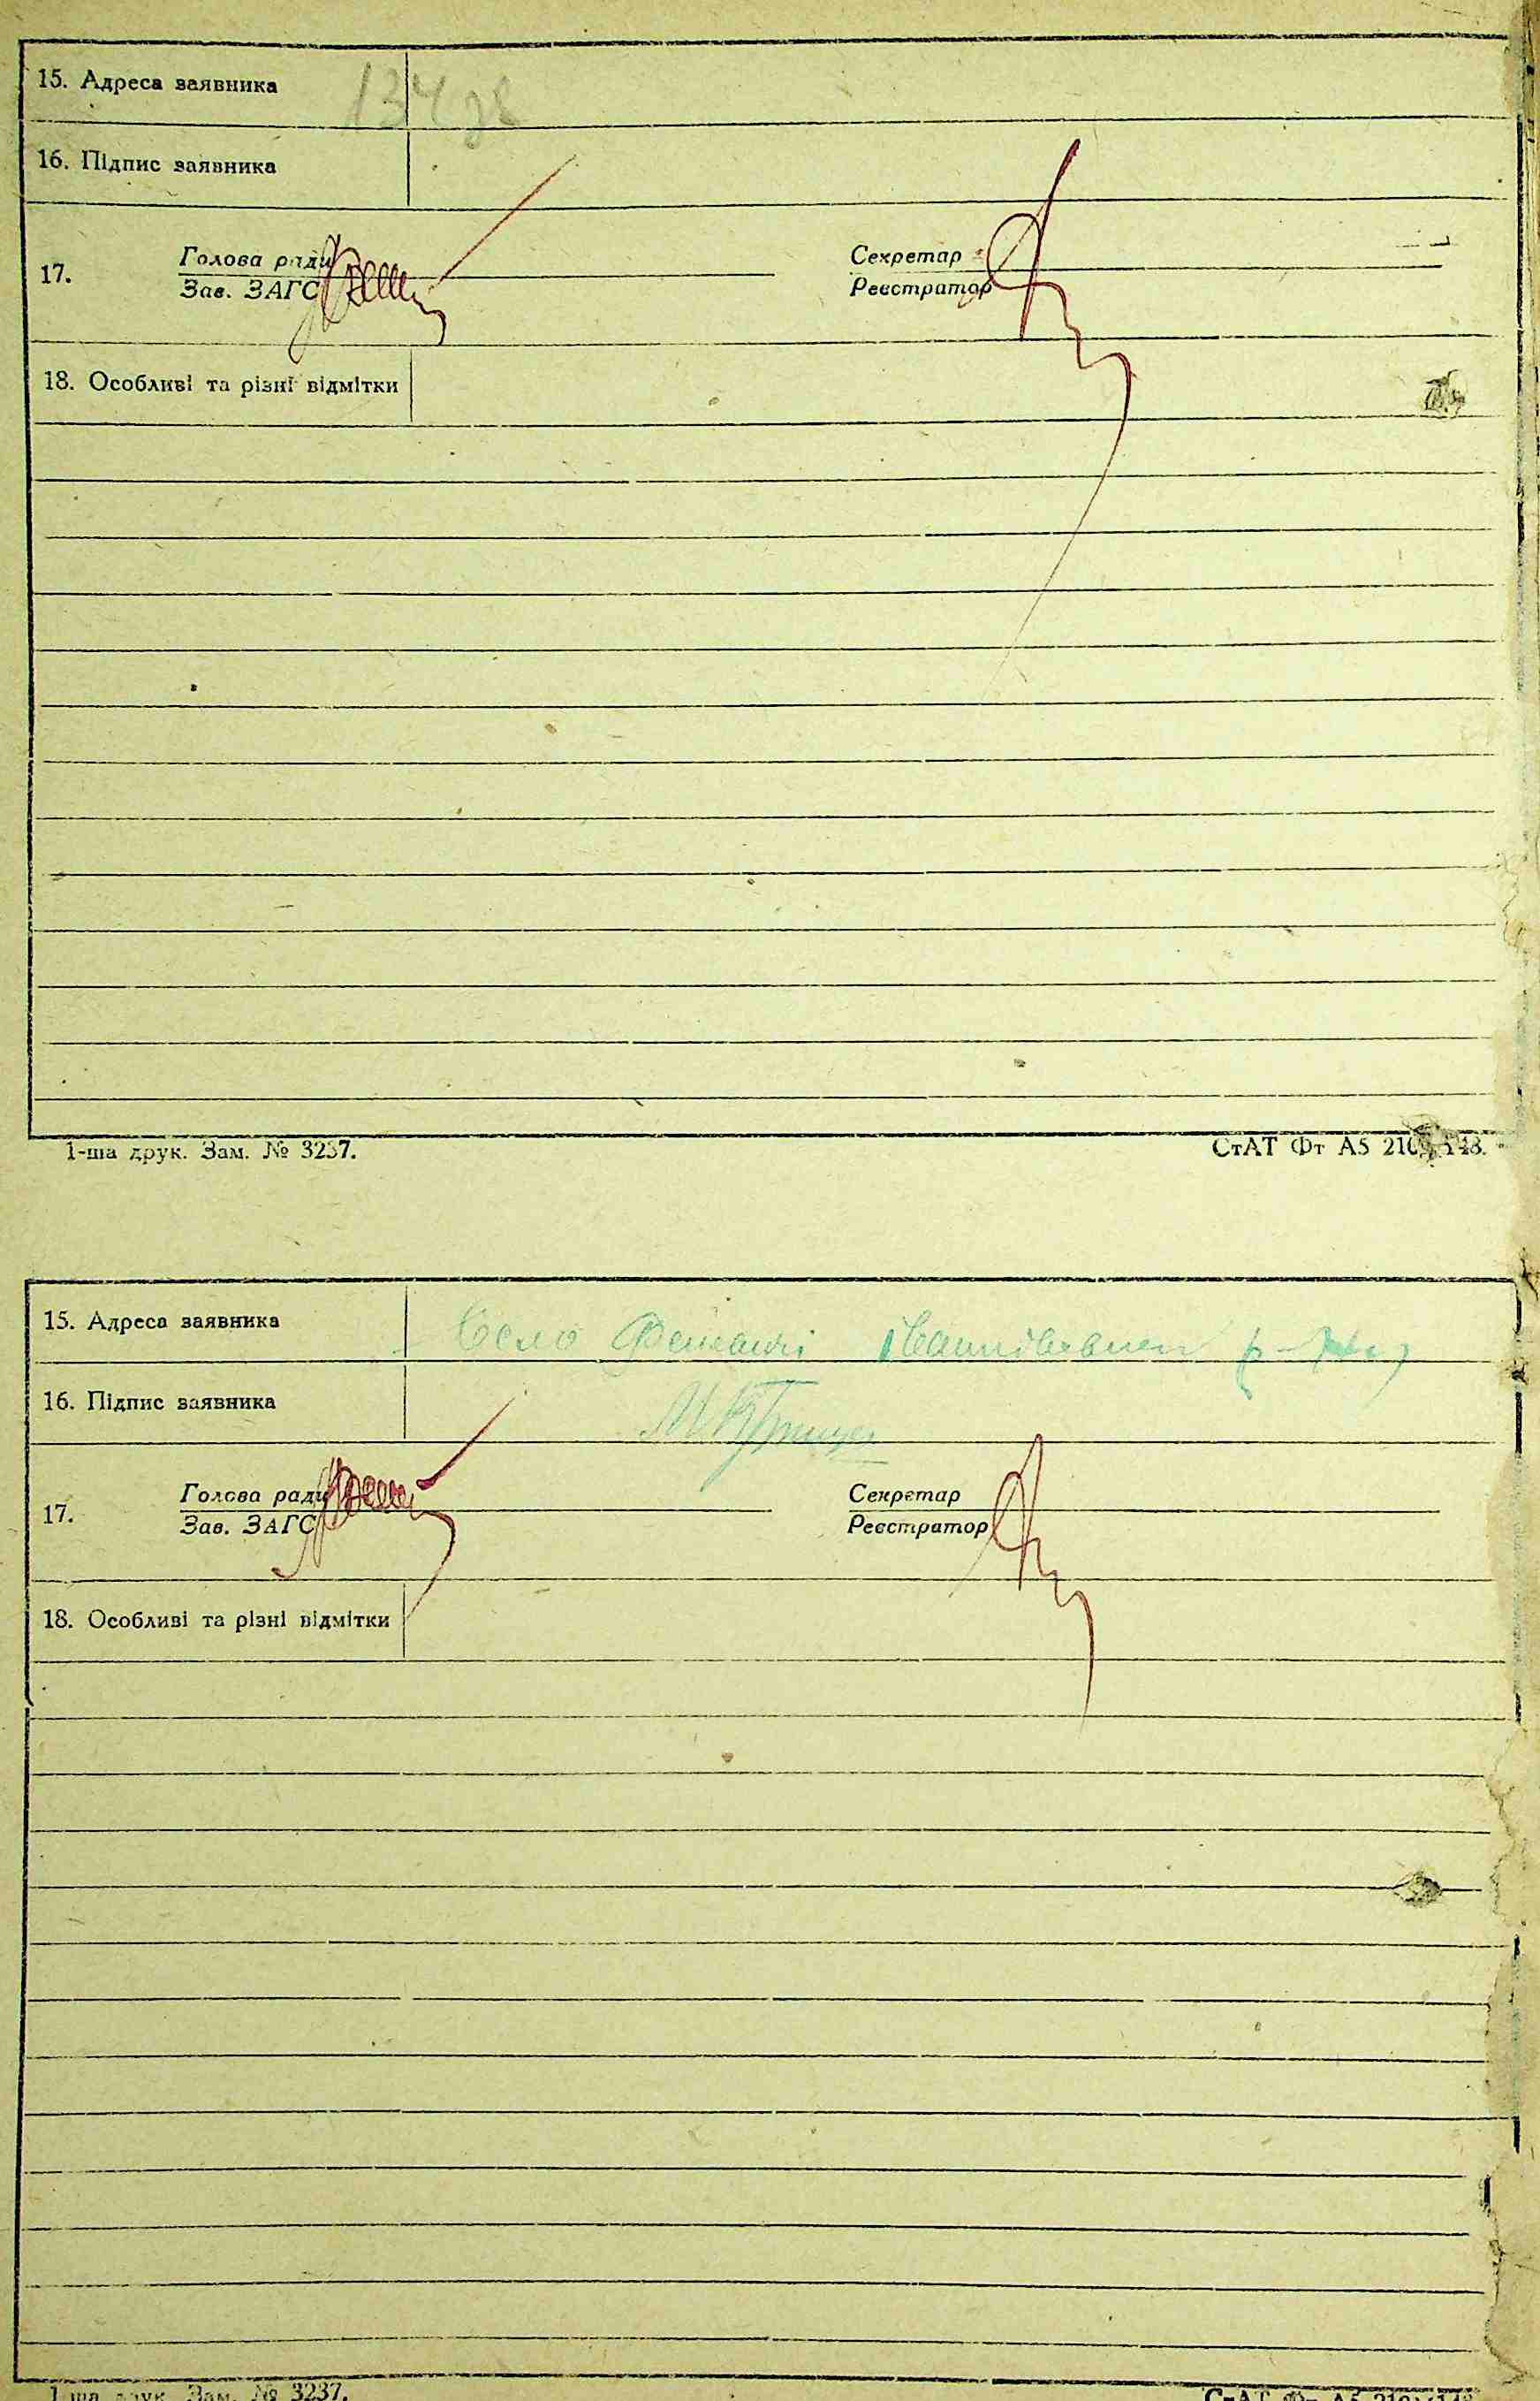 15. Адреса заявника 134
16. Підпис заявника
Голова ради Секретар
17.
Зав. ЗАГС Реєстратор
18. Особливі та різні відмітки
1-ша друк. Зам. № 3237. СтАТ Фт А5 210 148.
15. Адреса заявника Село
16. Підпис заявника
Голова ради Секретар
17.
Зав. ЗАГС Реєстратор
18. Особливі та різні відмітки
1-ша друк. Зам. № 3237. СтАТ Фт А5 210 148